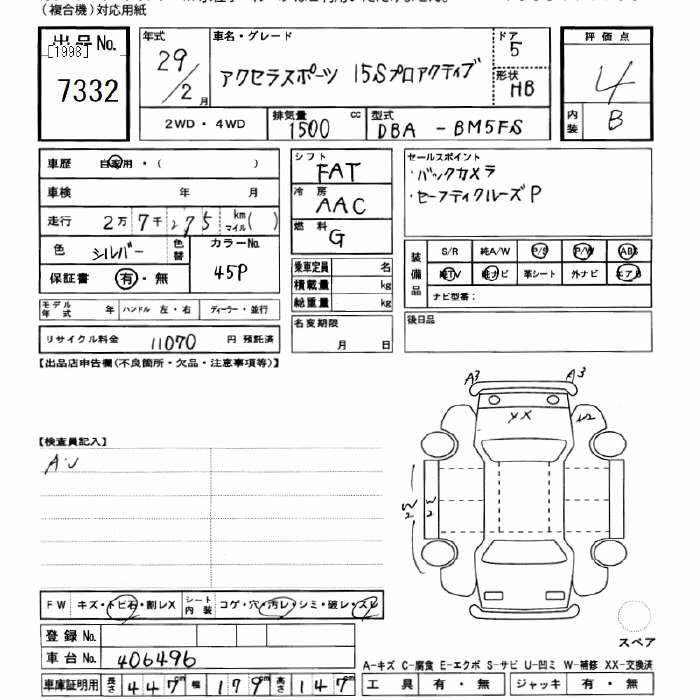 (複合機)対応用紙
出品No.
[1998]
7332
年式
29/2月
車名・グレード
アクセラスポーツ 15Sプロアクティブ
ドア
5
形状
HB
評価点
4
内装
B
2WD・4WD
排気量
1500 cc
型式
DBA - BM5FS
車歴 自家用・( )
車検 年 月
走行 2万7千275 km マイル( )
色 シルバー 色替
カラーNo.
45P
保証書 有・無
モデル年式 年 ハンドル 左・右 ディーラー・並行
リサイクル料金 11070 円 預託済
シフト
FAT
冷房
AAC
燃料
G
乗車定員 名
積載量 kg
総重量 kg
名変期限
月 日
セールスポイント
・バックカメラ
・セーフティクルーズP
装備品
S/R 純A/W P/S P/W ABS
純TV 純ナビ 革シート 外ナビ エアB
ナビ型番:
後日品
【出品店申告欄(不良箇所・欠品・注意事項等)】
【検査員記入】
A・U
A3
A3
XX
W2
W2
W2
FW キズ・トビ石・割レX
シート内装 コゲ・穴・汚レ・シミ・破レ・スレ
登録No.
車台No. 406496
車庫証明用 長さ 447cm 幅 179cm 高さ 147cm
スペア
A-キズ C-腐食 E-エクボ S-サビ U-凹ミ W-補修 XX-交換済
工具 有・無 ジャッキ 有・無